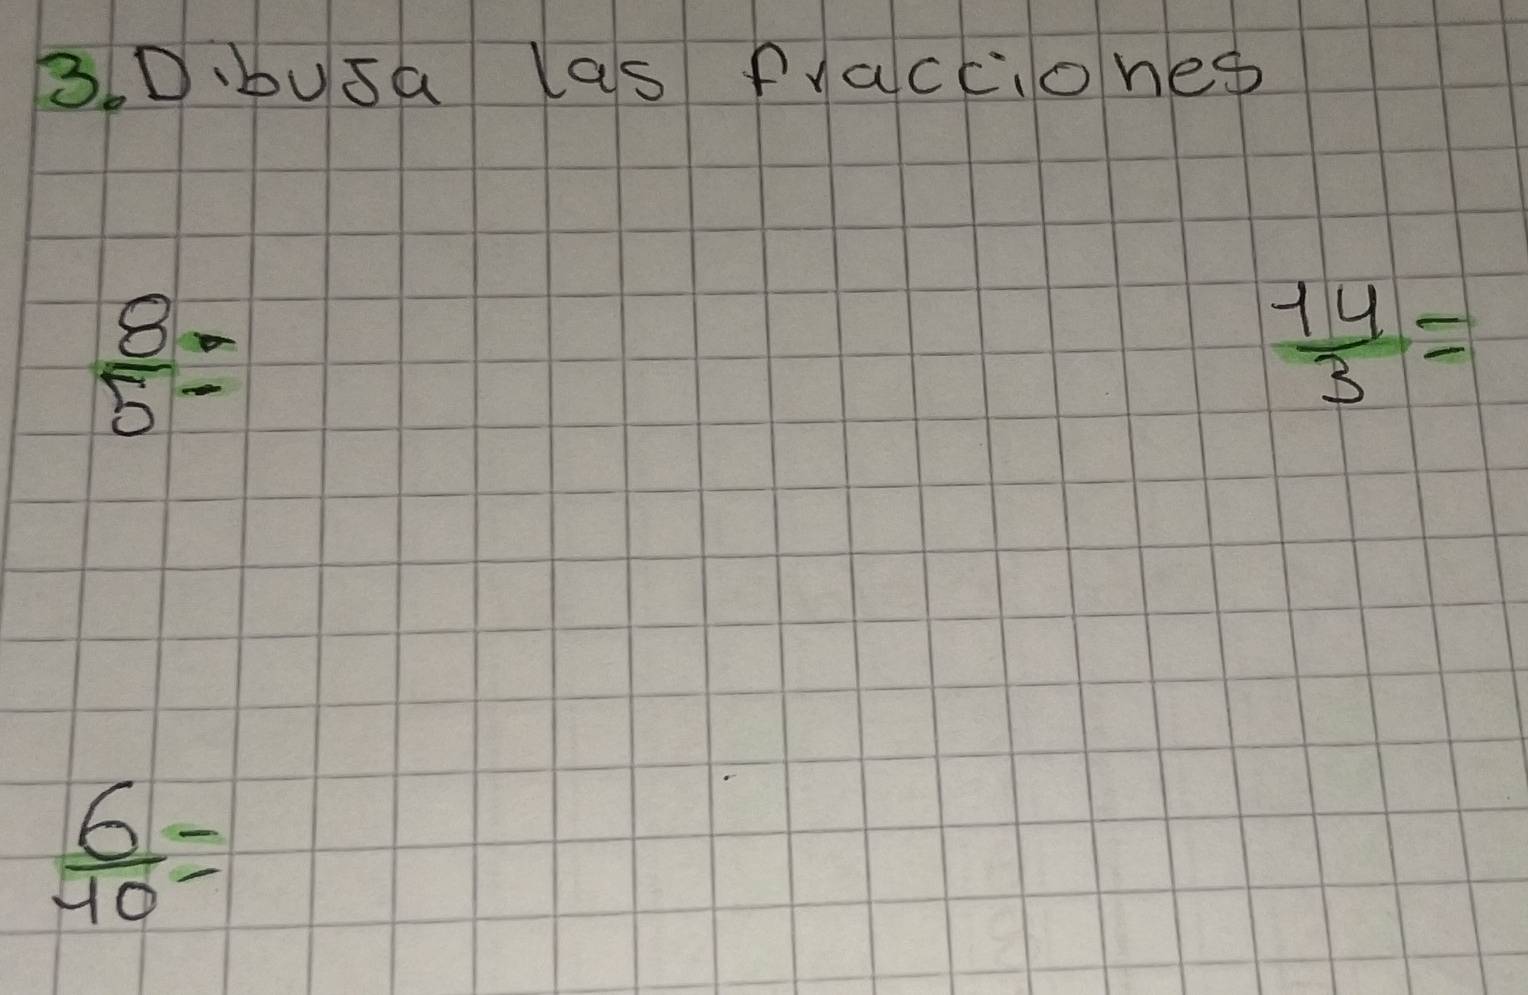 3. Dibuja las fracciones
8/5 = 14/3 =
6/10 =